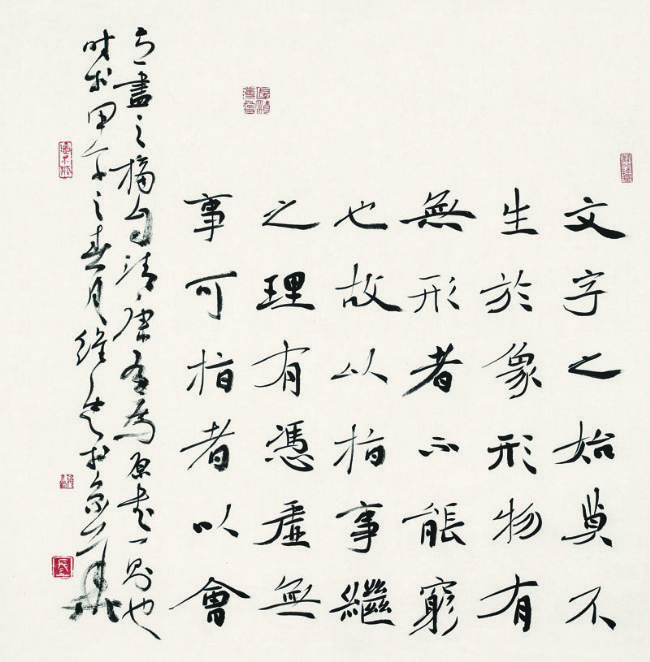 文字之始莫不
生於象形物有
無形者不能窮
也故以指事繼
之理有憑虛無
事可指者以會
意盡之摘句清康有為原書一則也
时在甲午之春月